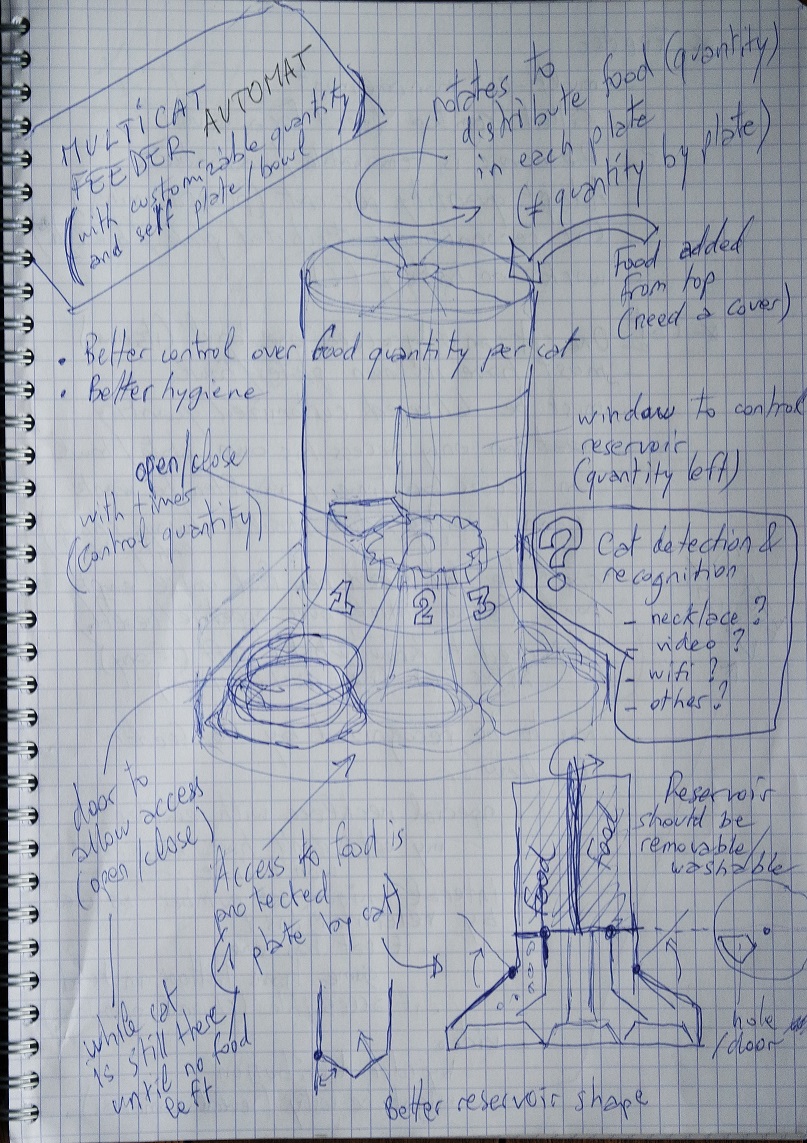 MULTICAT
FEEDER AUTOMAT
(with customizable quantity)
and self plate/bowl
rotates to
distribute food (quantity)
in each plate
(≠ quantity by plate)
Food added
from top
(need a cover)
• Better control over food quantity per cat
• Better hygiene
window to control
reservoir
(quantity left)
open/close
with times
(control quantity)
? Cat detection &
recognition
- necklace ?
- video ?
- wifi ?
- other ?
1 2 3
door to
allow access
(open/close)
while cat
is still there
until no food
left
Access to food is
protected
(1 plate by cat)
Food
Food
Reservoir
should be
removable/
washable
hole
/door
Better reservoir shape